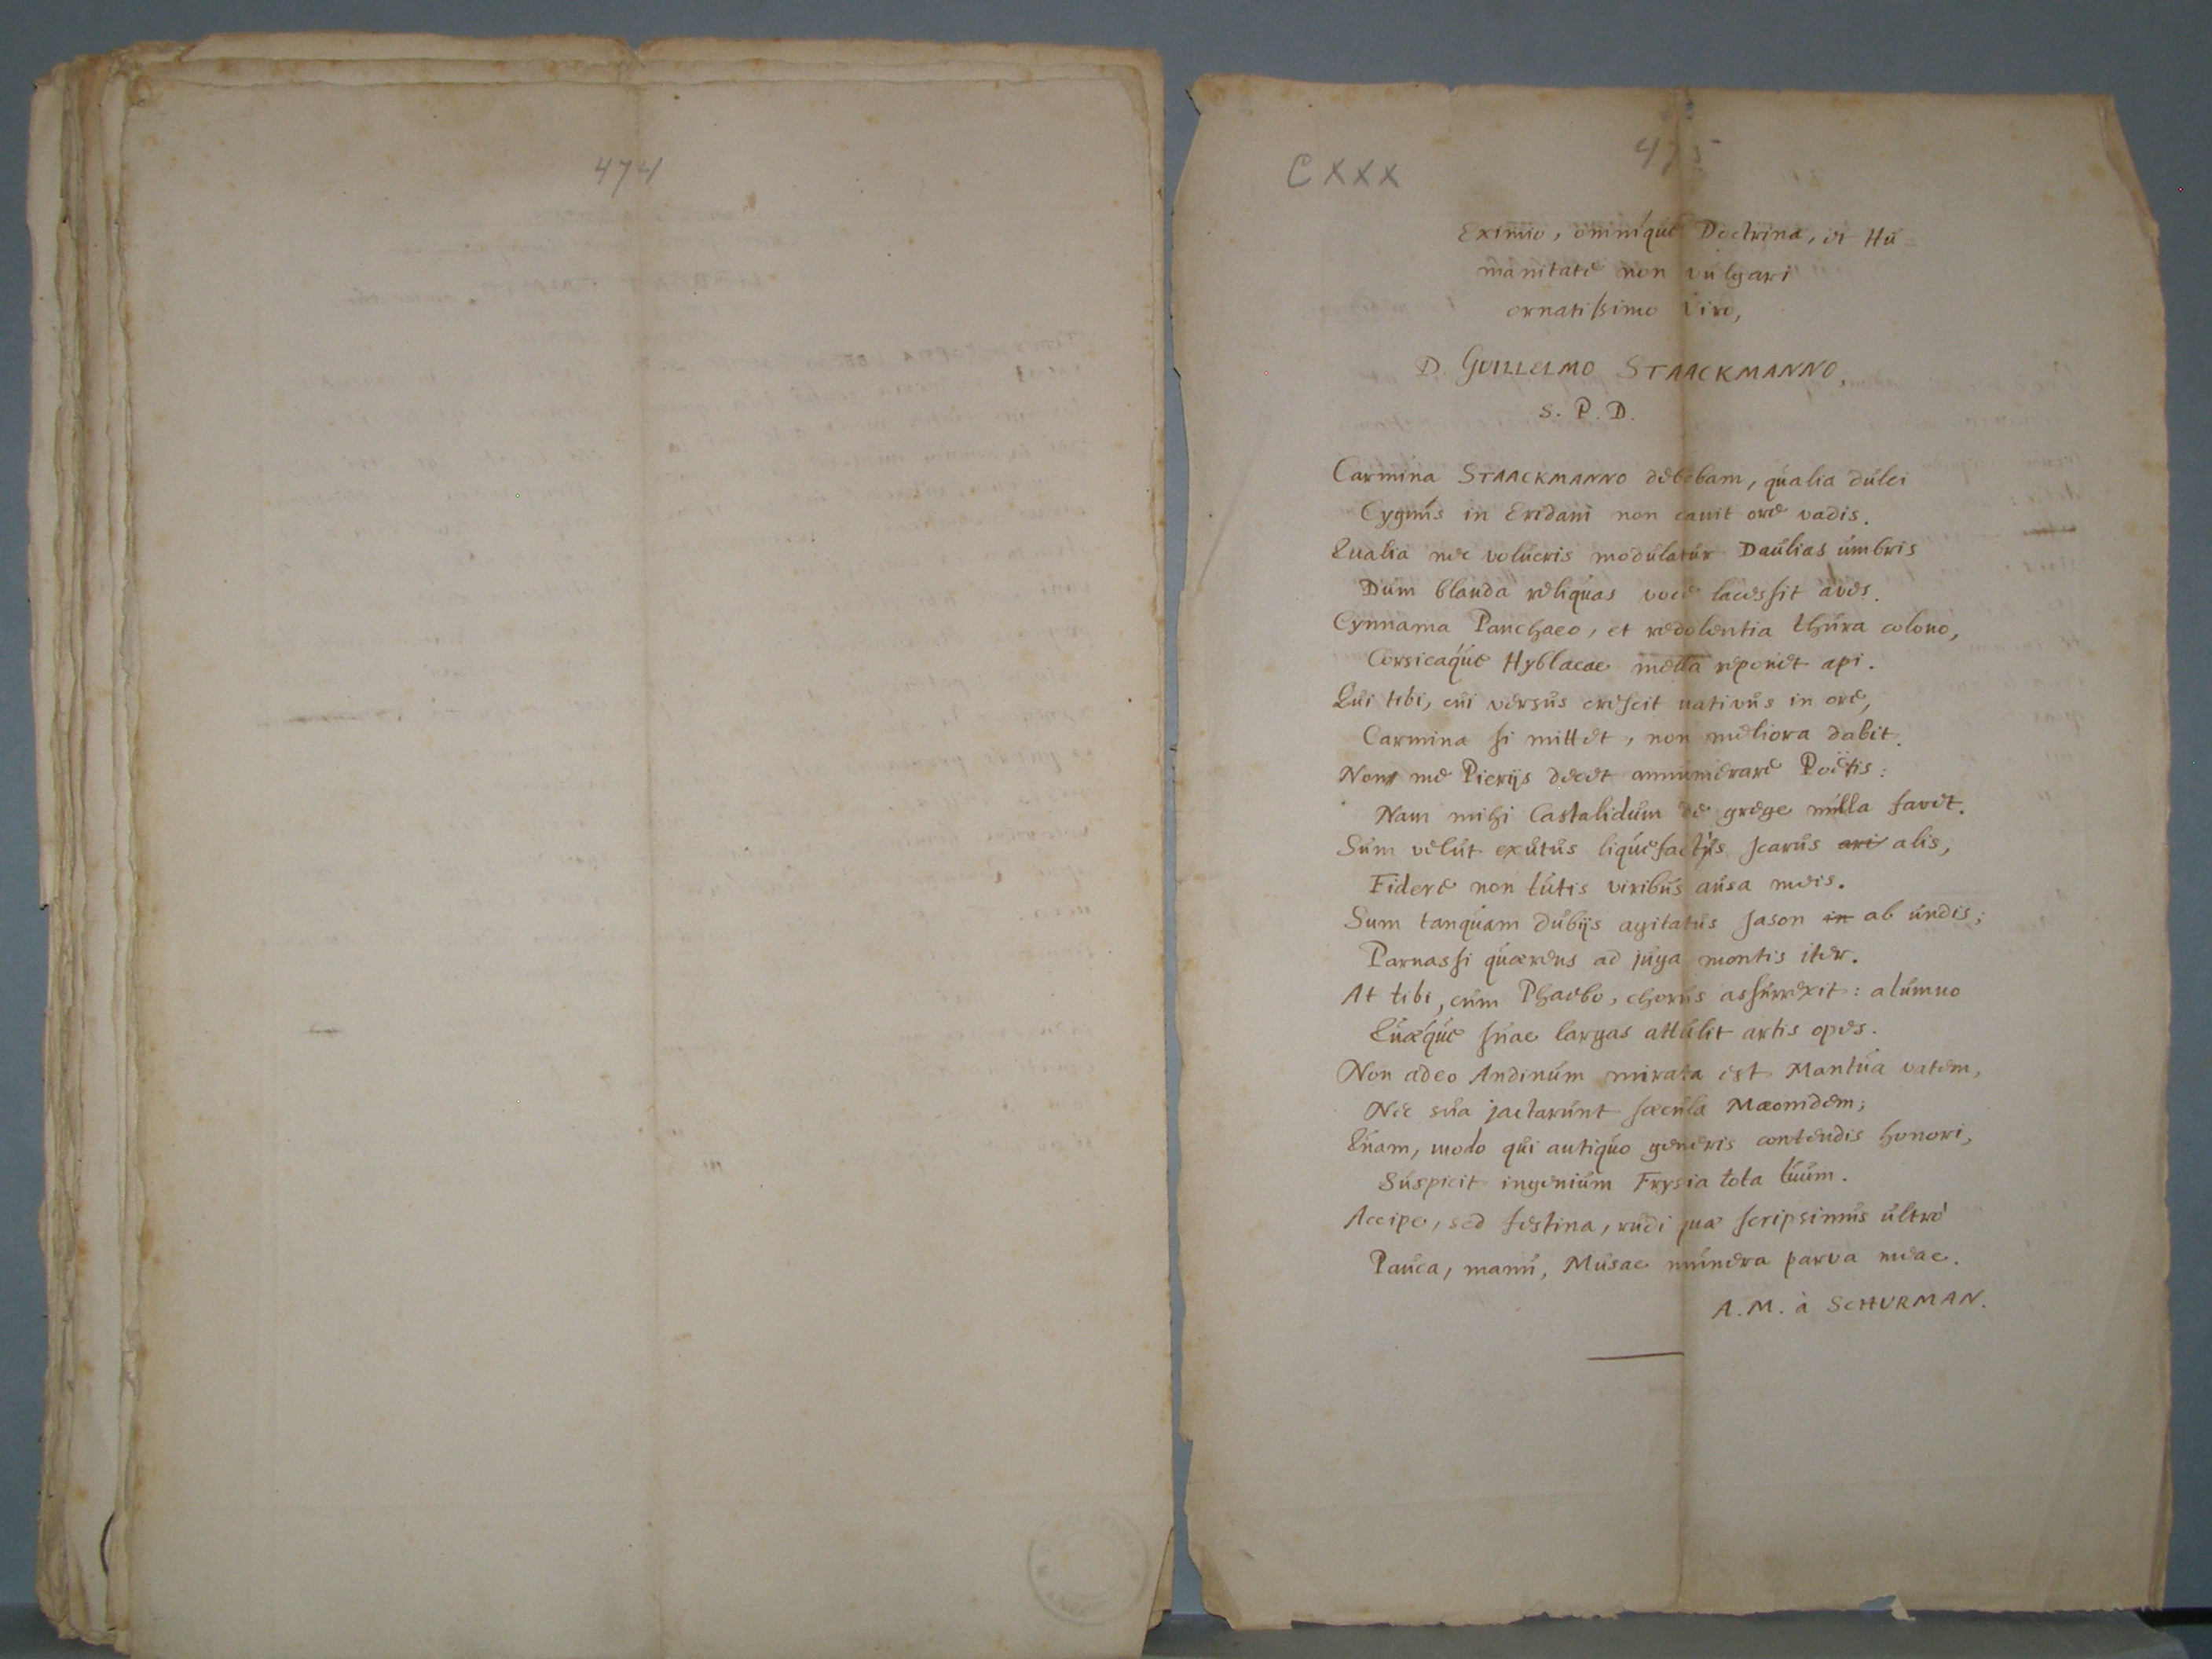 474
CXXX
475
Eximio, omnique Doctrina, et Hu=
manitate non vulgari
ornatissimo Viro,
D. GUILLELMO STAACKMANNO,
S. P. D.
Carmina STAACKMANNO debebam, qualia dulci
Cygnus in Eridani non canit ore vadis.
Qualia nec volucris modulatur Daulias umbris
Dum blanda reliquas voce lacessit aves.
Cynnama Panchaeo, et redolentia thura colono,
Corsicaque Hyblaeae mella reponet api.
Qui tibi, cui versus crescit nativus in ore,
Carmina si mittet, non meliora dabit.
Non me Pierijs decet annumerare Poëtis:
Nam mihi Castalidum de grege nulla favet.
Sum velut exutus liquefactis Icarus ari alis,
Fidere non tutis viribus ausa meis.
Sum tanquam dubijs agitatus Jason in ab undis;
Parnassi quaerens ad juga montis iter.
At tibi, cum Phaebo, chorus assurrexit: alumno
Quaeque suae largas attulit artis opes.
Non adeo Andinum mirata est Mantua vatem,
Nec sua jactarunt saecula Maeonidem;
Quam, modo qui antiquo generis contendis honori,
Suspicit ingenium Frysia tota tuum.
Accipe, sed festina, rudi quae scripsimus ultro
Pauca, manu, Musae munera parva meae.
A. M. à SCHURMAN.